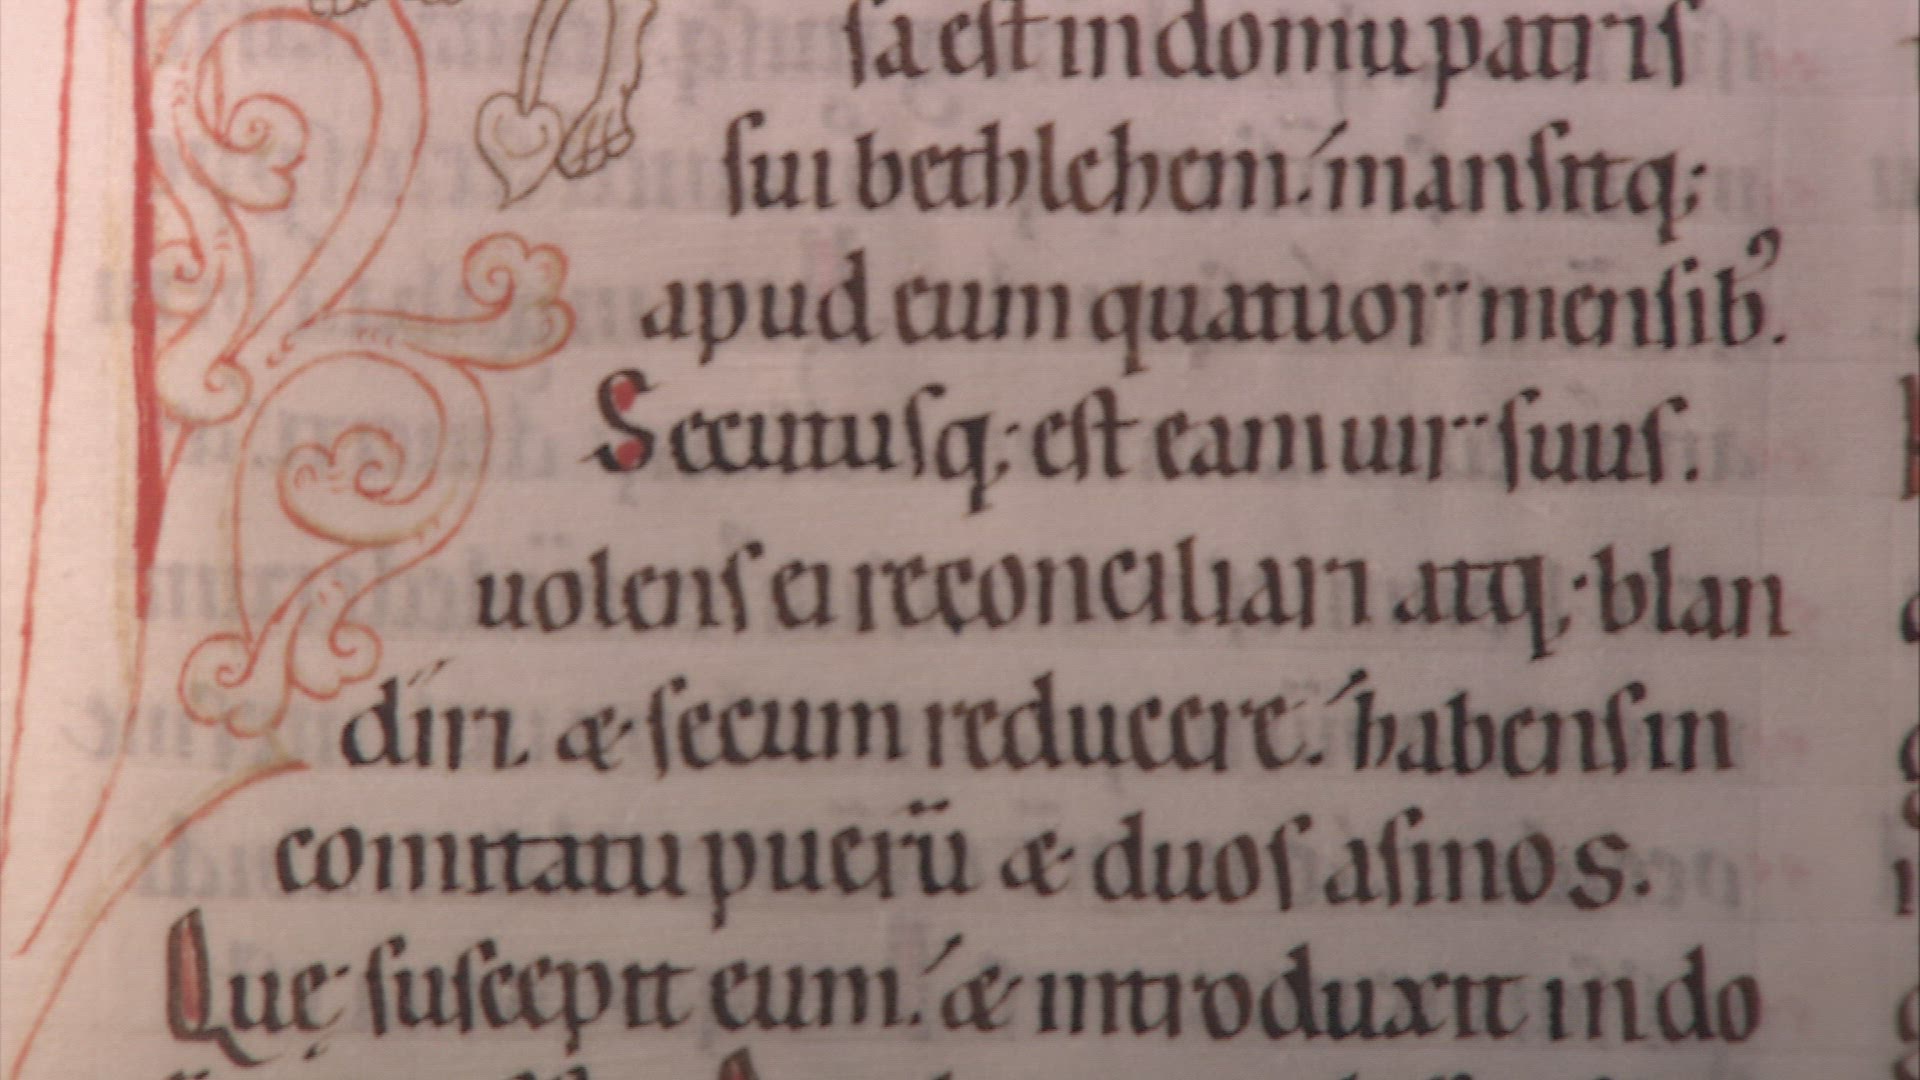 sa est in domu patris
sui bethlehem. mansitq;
apud eum quatuor mensib᾽.
Secutusq; est eam uir suus.
uolens ei reconciliari atq; blan
diri. & secum reducere. habens in
comitatu puerū & duos asinos.
Quę suscepit eum. & introduxit in do